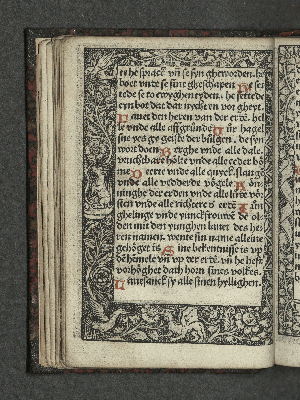 he sprack vñ se syn gheworden. he
boet vnde se sint gheschapen He set
tede se to ewyghen tyden. he settede
eyn bot dat dar nycht en vor gheyt.
Lauet den heren van der erdē. hel
le vnde alle affgründe Für hagel
sne ys geyste der
wort doen Berghe vnde alle
vruchtbare hölte vnde alle ceder bö
me Deerte vnde alle quyck. slange
vnde alle vedderde vögele Kön
ninghe der erden vnde alle lüde vör
sten vnde alle richtere d' erdē Jün
ghelinge vnde yunckfrouwē de ol
den mit den yunghen lauet des he
ren namen. wente sin name alleine
gehöget is Sine bekentnisse is vp
dē hēmele vñ vp der erdē. vñ he heft
vorhöghet dath horn sines volkes.
Lauesanck sy alle sinen hyllighen.